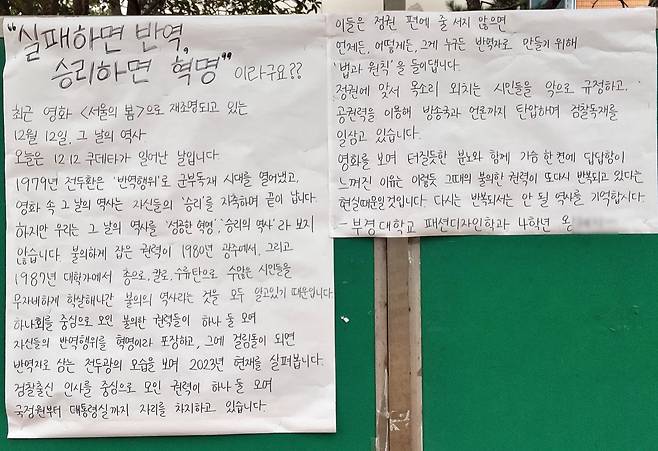 "실패하면 반역,
승리하면 혁명" 이라구요??
최근 영화 <서울의 봄>으로 재조명되고 있는
12월 12일, 그 날의 역사
오늘은 12.12 쿠데타가 일어난 날입니다.
1979년 전두환은 '반역행위'로 군부독재 시대를 열어냈고,
영화 속 그 날의 역사는 자신들의 '승리'를 자축하며 끝이 납니다.
하지만 우리는 그 날의 역사를 '성공한 혁명', '승리의 역사'라 보지
않습니다. 불의하게 잡은 권력이 1980년 광주에서, 그리고
1987년 대학가에서 총으로, 칼로, 수류탄으로 수많은 시민들을
무자비하게 학살해나간 불의의 역사라는 것을 모두 알고있기 때문입니다.
하나회를 중심으로 모인 불의한 권력들이 하나 둘 모여
자신들의 반역행위를 혁명이라 포장하고, 그에 걸림돌이 되면
반역자로 삼는 전두광의 모습을 보며 2023년 현재를 살펴봅니다.
검찰출신 인사를 중심으로 모인 권력이 하나 둘 모여
국정원부터 대통령실까지 자리를 차지하고 있습니다.
이들은 정권 편에 줄 서지 않으면
언제든, 어떻게든, 그게 누구든 반역자로 만들기 위해
'법과 원칙'을 들이댑니다.
정권에 맞서 목소리 외치는 시민들을 악으로 규정하고,
공권력을 이용해 방송국과 언론까지 탄압하며 검찰독재를
일삼고 있습니다.
영화를 보며 터질듯한 분노와 함께 가슴 한 켠에 답답함이
느껴진 이유는 이렇듯 그때의 불의한 권력이 또다시 반복되고 있다는
현실때문일 것입니다. 다시는 반복되어서는 안 될 역사를 기억합시다
- 부경대학교 패션디자인학과 4학년 왕